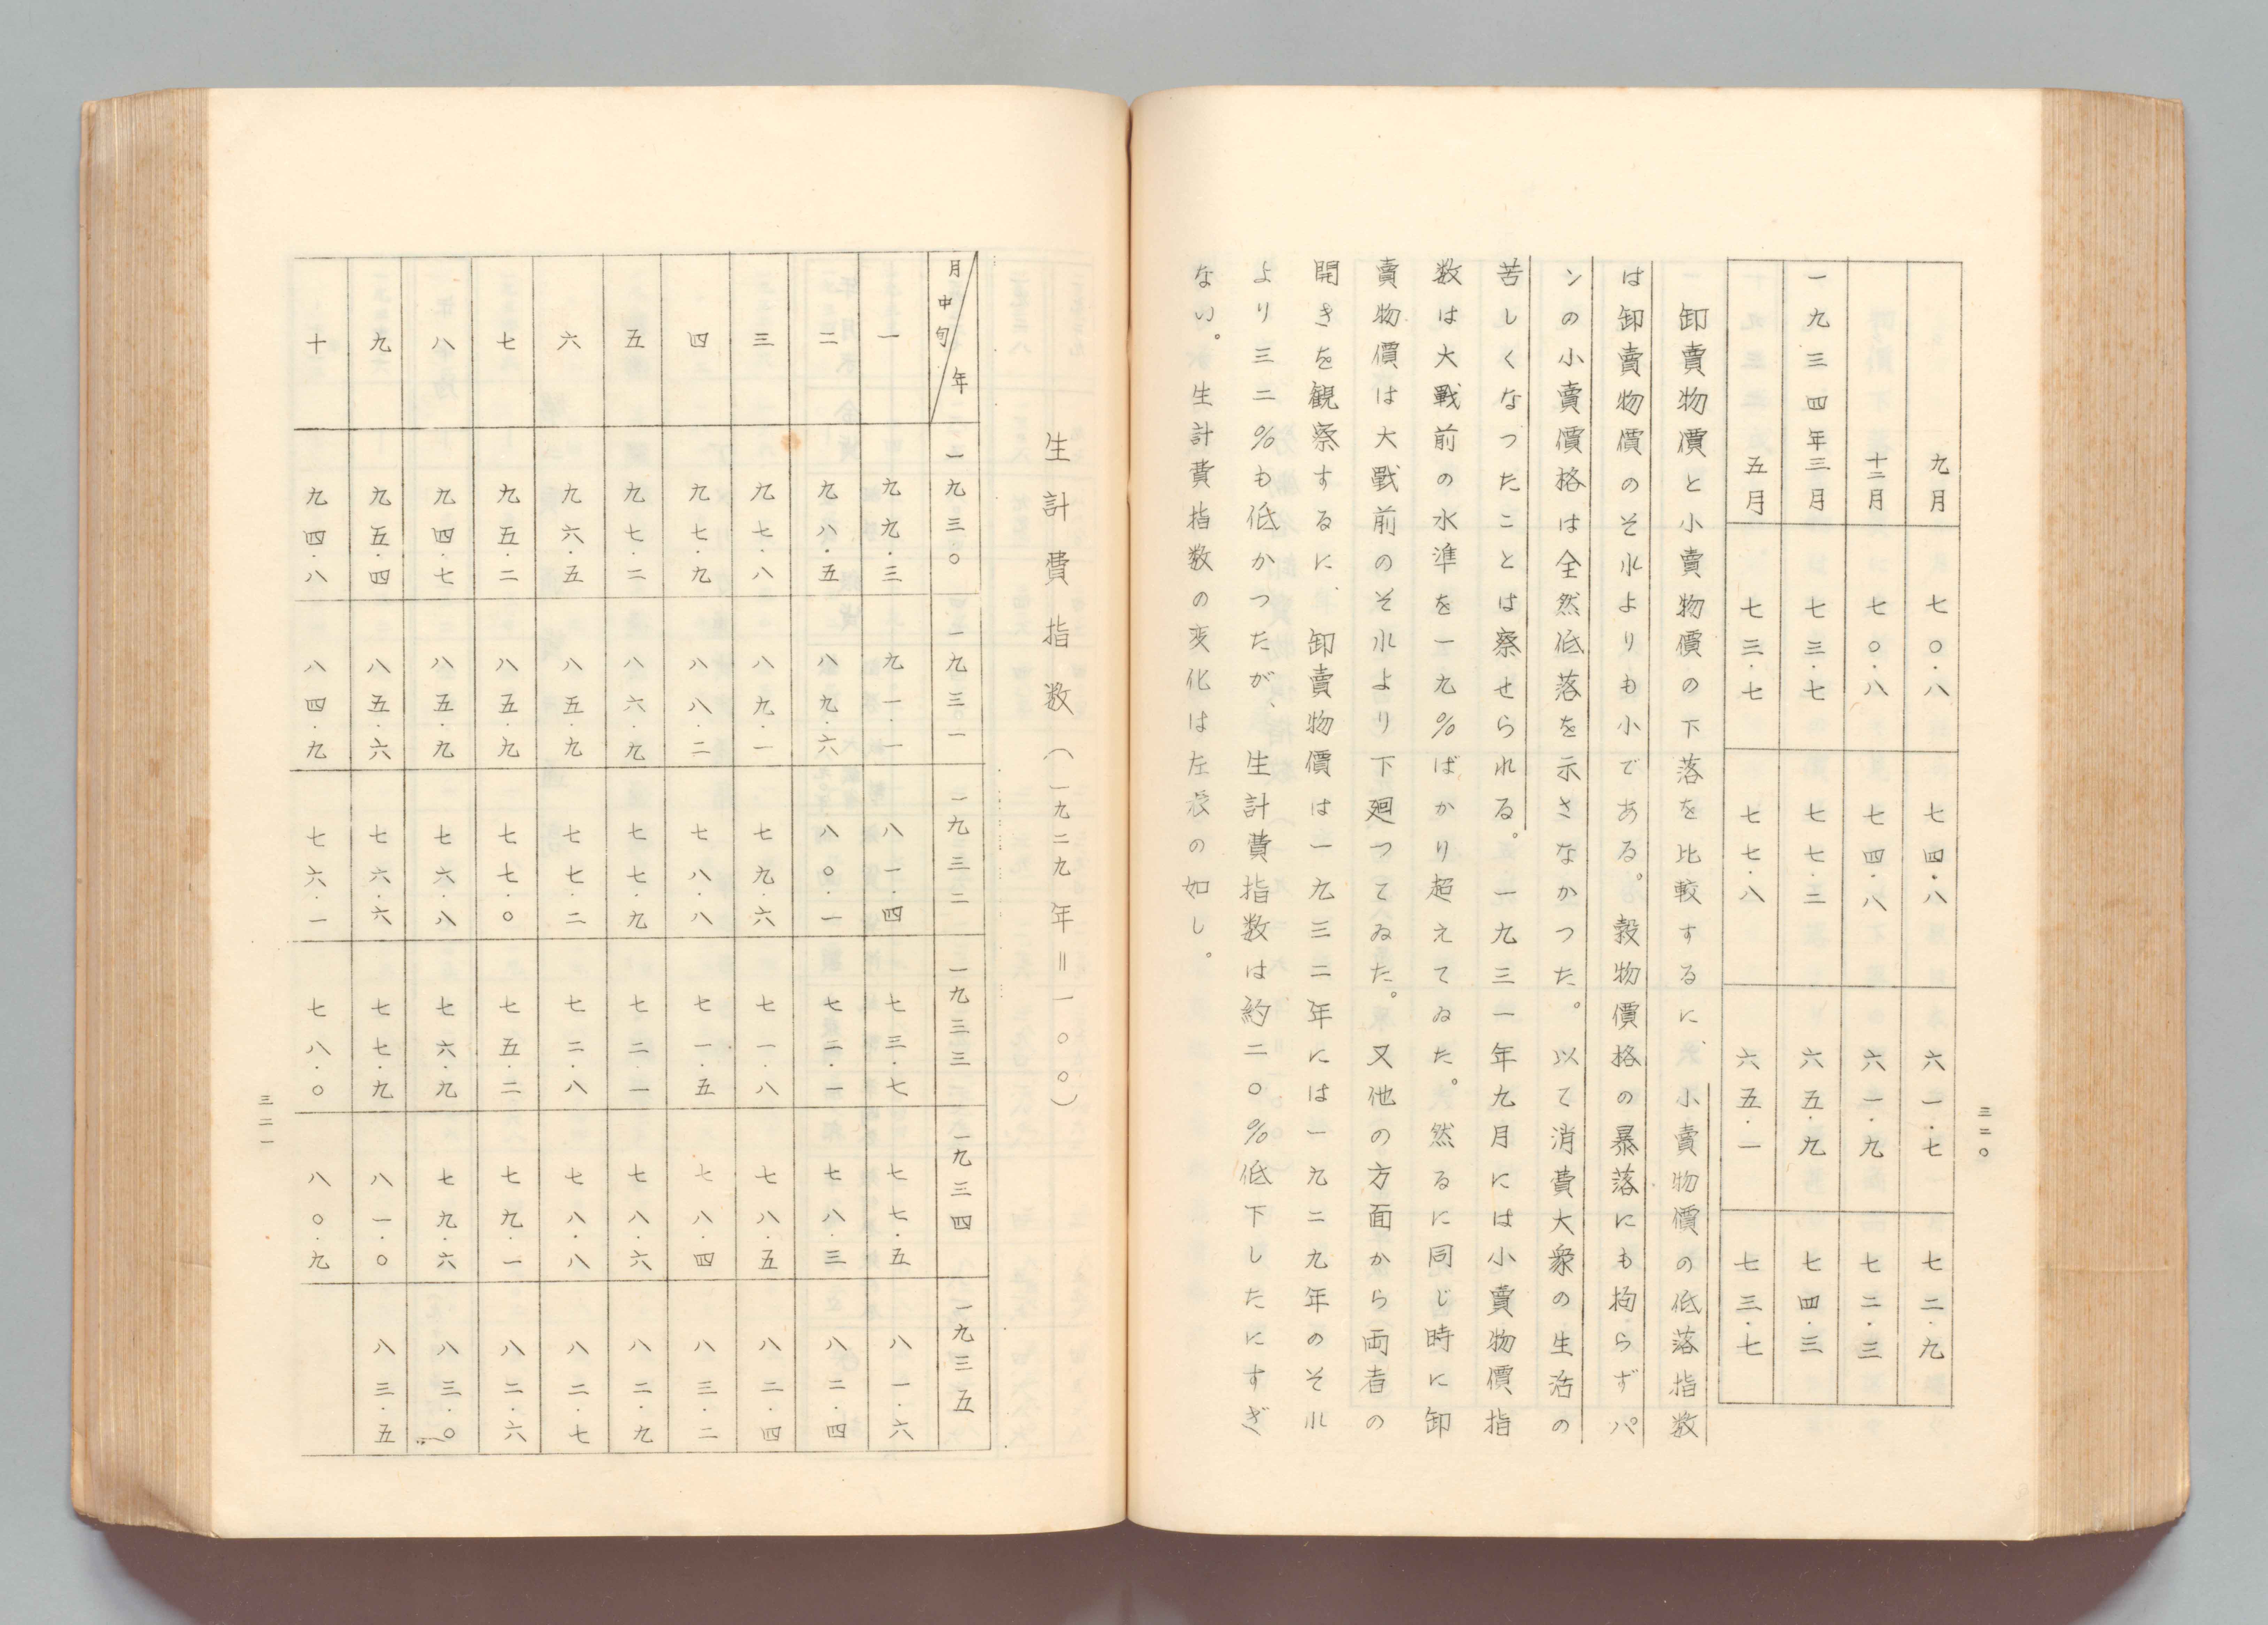 三二〇
九月 七〇・八 七四・八 六一・七 七二・九
十二月 七〇・八 七四・八 六一・九 七二・三
一九三四年三月 七三・七 七七・二 六五・九 七四・三
五月 七三・七 七七・八 六五・一 七三・七
卸賣物價と小賣物價の下落を比較するに、小賣物價の低落指数
は卸賣物價のそれよりも小である。穀物價格の暴落にも拘らずパ
ンの小賣價格は全然低落を示さなかつた。以て消費大衆の生活の
苦しくなつたことは察せられる。一九三一年九月には小賣物價指
数は大戰前の水準を一九%ばかり超えてゐた。然るに同じ時に卸
賣物價は大戰前のそれより下廻つてゐた。又他の方面から両者の
開きを観察するに、卸賣物價は一九三二年には一九二九年のそれ
より三二%も低かつたが、生計費指数は約二〇%低下したにすぎ
ない。生計費指数の変化は左表の如し。
生計費指数(一九二九年=一〇〇)
月中旬/年 一九三〇 一九三一 一九三二 一九三三 一九三四 一九三五
一 九九・三 九一・一 八一・四 七三・七 七七・五 八一・六
二 九八・五 八九・六 八〇・一 七二・一 七八・三 八二・四
三 九七・八 八九・一 七九・六 七一・八 七八・五 八二・四
四 九七・九 八八・二 七八・八 七一・五 七八・四 八三・二
五 九七・二 八六・九 七七・九 七二・一 七八・六 八二・九
六 九六・五 八五・九 七七・二 七二・八 七八・八 八二・七
七 九五・二 八五・九 七七・〇 七五・二 七九・一 八二・六
八 九四・七 八五・九 七六・八 七六・九 七九・六 八三・〇
九 九五・四 八五・六 七六・六 七七・九 八一・〇 八三・五
十 九四・八 八四・九 七六・一 七八・〇 八〇・九
三二一